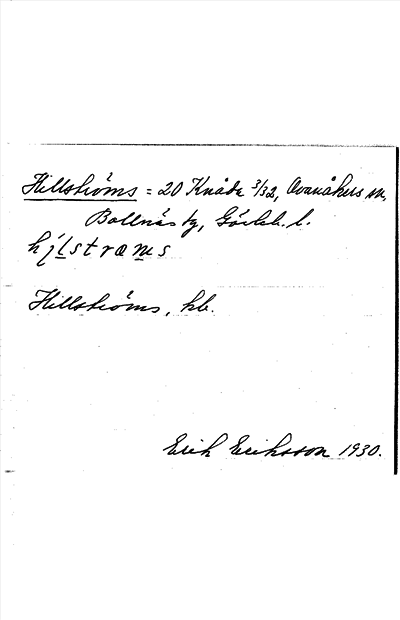 Hillströms = 20 Knåda 3/32, Ovanåkers sn,
Bollnäs tg, Gävleb. l.
hjilstrœms
Hillströms, kb.
Erik Eriksson 1930.